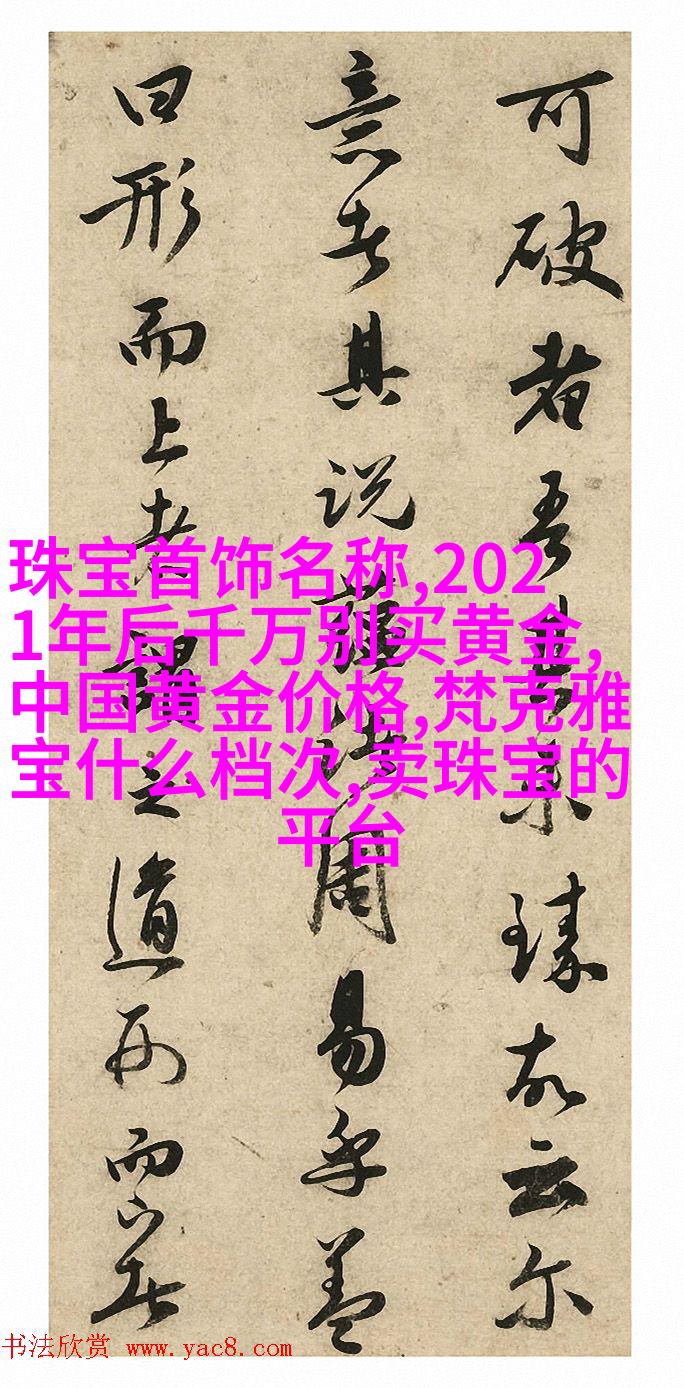 可破者吾未臻故云尔
意者其说周易乎盖
曰形而上者謂之道形而下者
珠宝首饰名称,202
1年后千万别买黄金,
中国黄金价格,梵克雅
宝什么档次,卖珠宝的
平台
书法欣赏 www.yac8.com